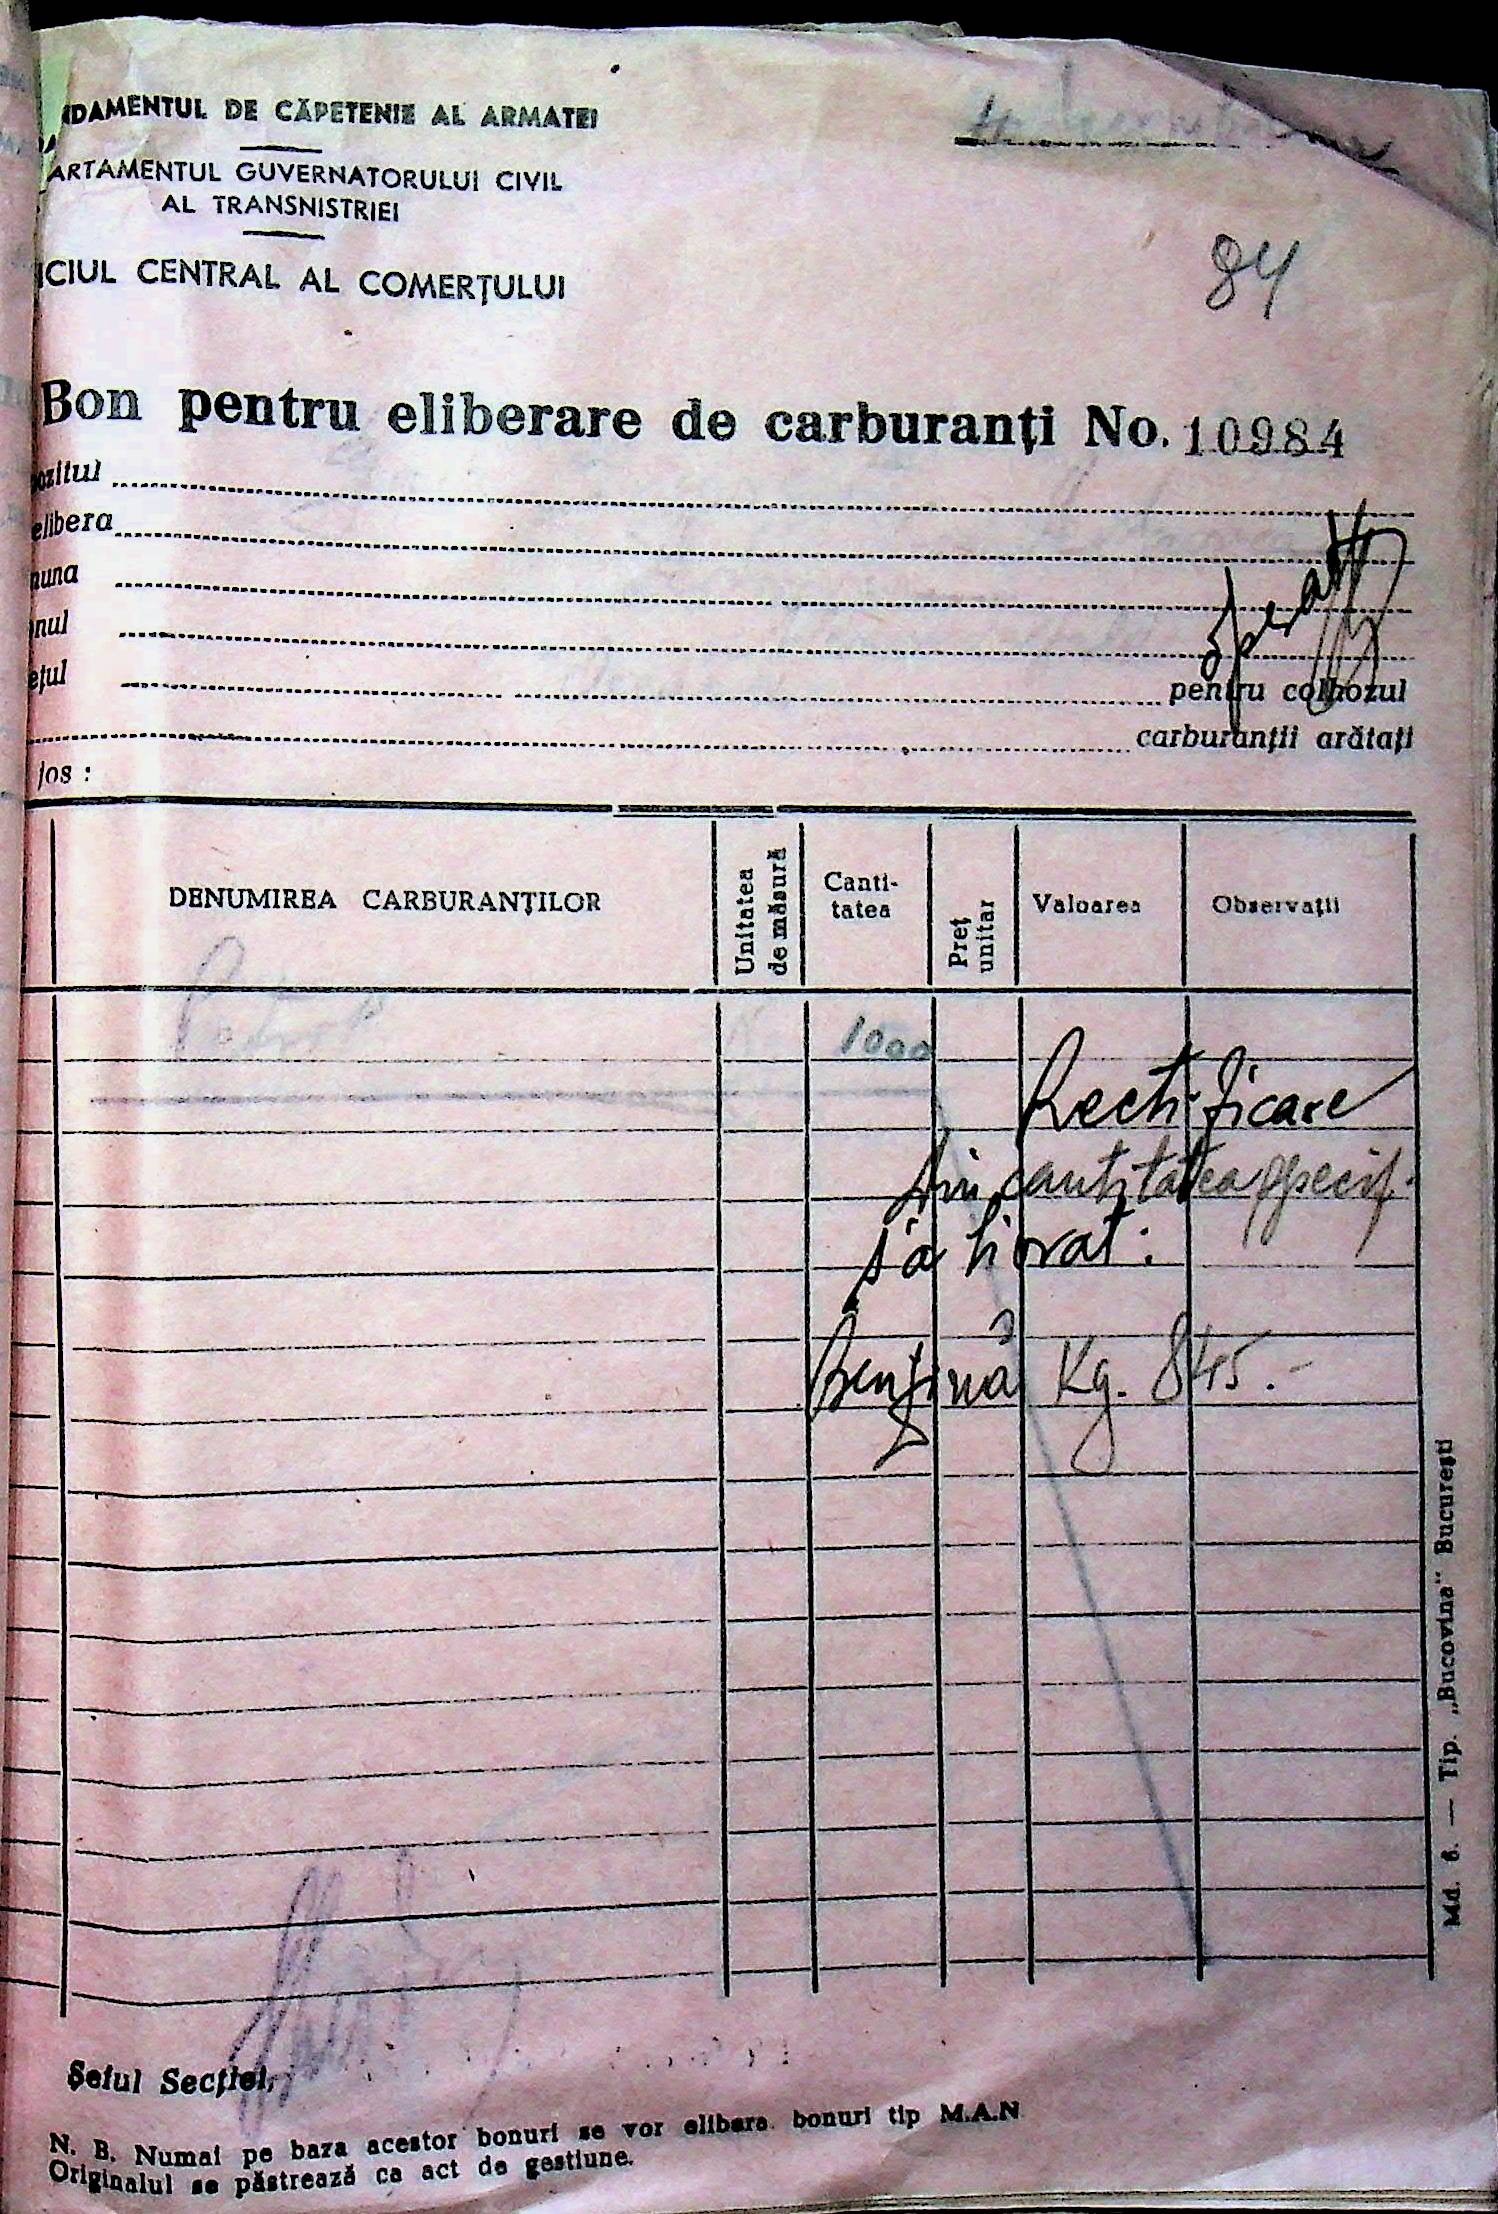 NDAMENTUL DE CĂPETENIE AL ARMATEI
ARTAMENTUL GUVERNATORULUI CIVIL
AL TRANSNISTRIEI
ICIUL CENTRAL AL COMERŢULUI
84
Bon pentru eliberare de carburanţi No. 10984
ozitul
elibera
nuna
nul
eţul pentru colhozul
carburanţii arătaţi
jos :
DENUMIREA CARBURANŢILOR
Unitatea de măsură
Canti-
tatea
Preţ unitar
Valoarea
Observaţii
1000
Rectificare
din cantitatea specif.
s'a livrat:
Benzină Kg. 845.-
Md. 6. — Tip. „Bucovina" Bucureşti
Şeful Secţiei,
N. B. Numai pe baza acestor bonuri se vor elibera bonuri tip M.A.N
Originalul se păstrează ca act de gestiune.